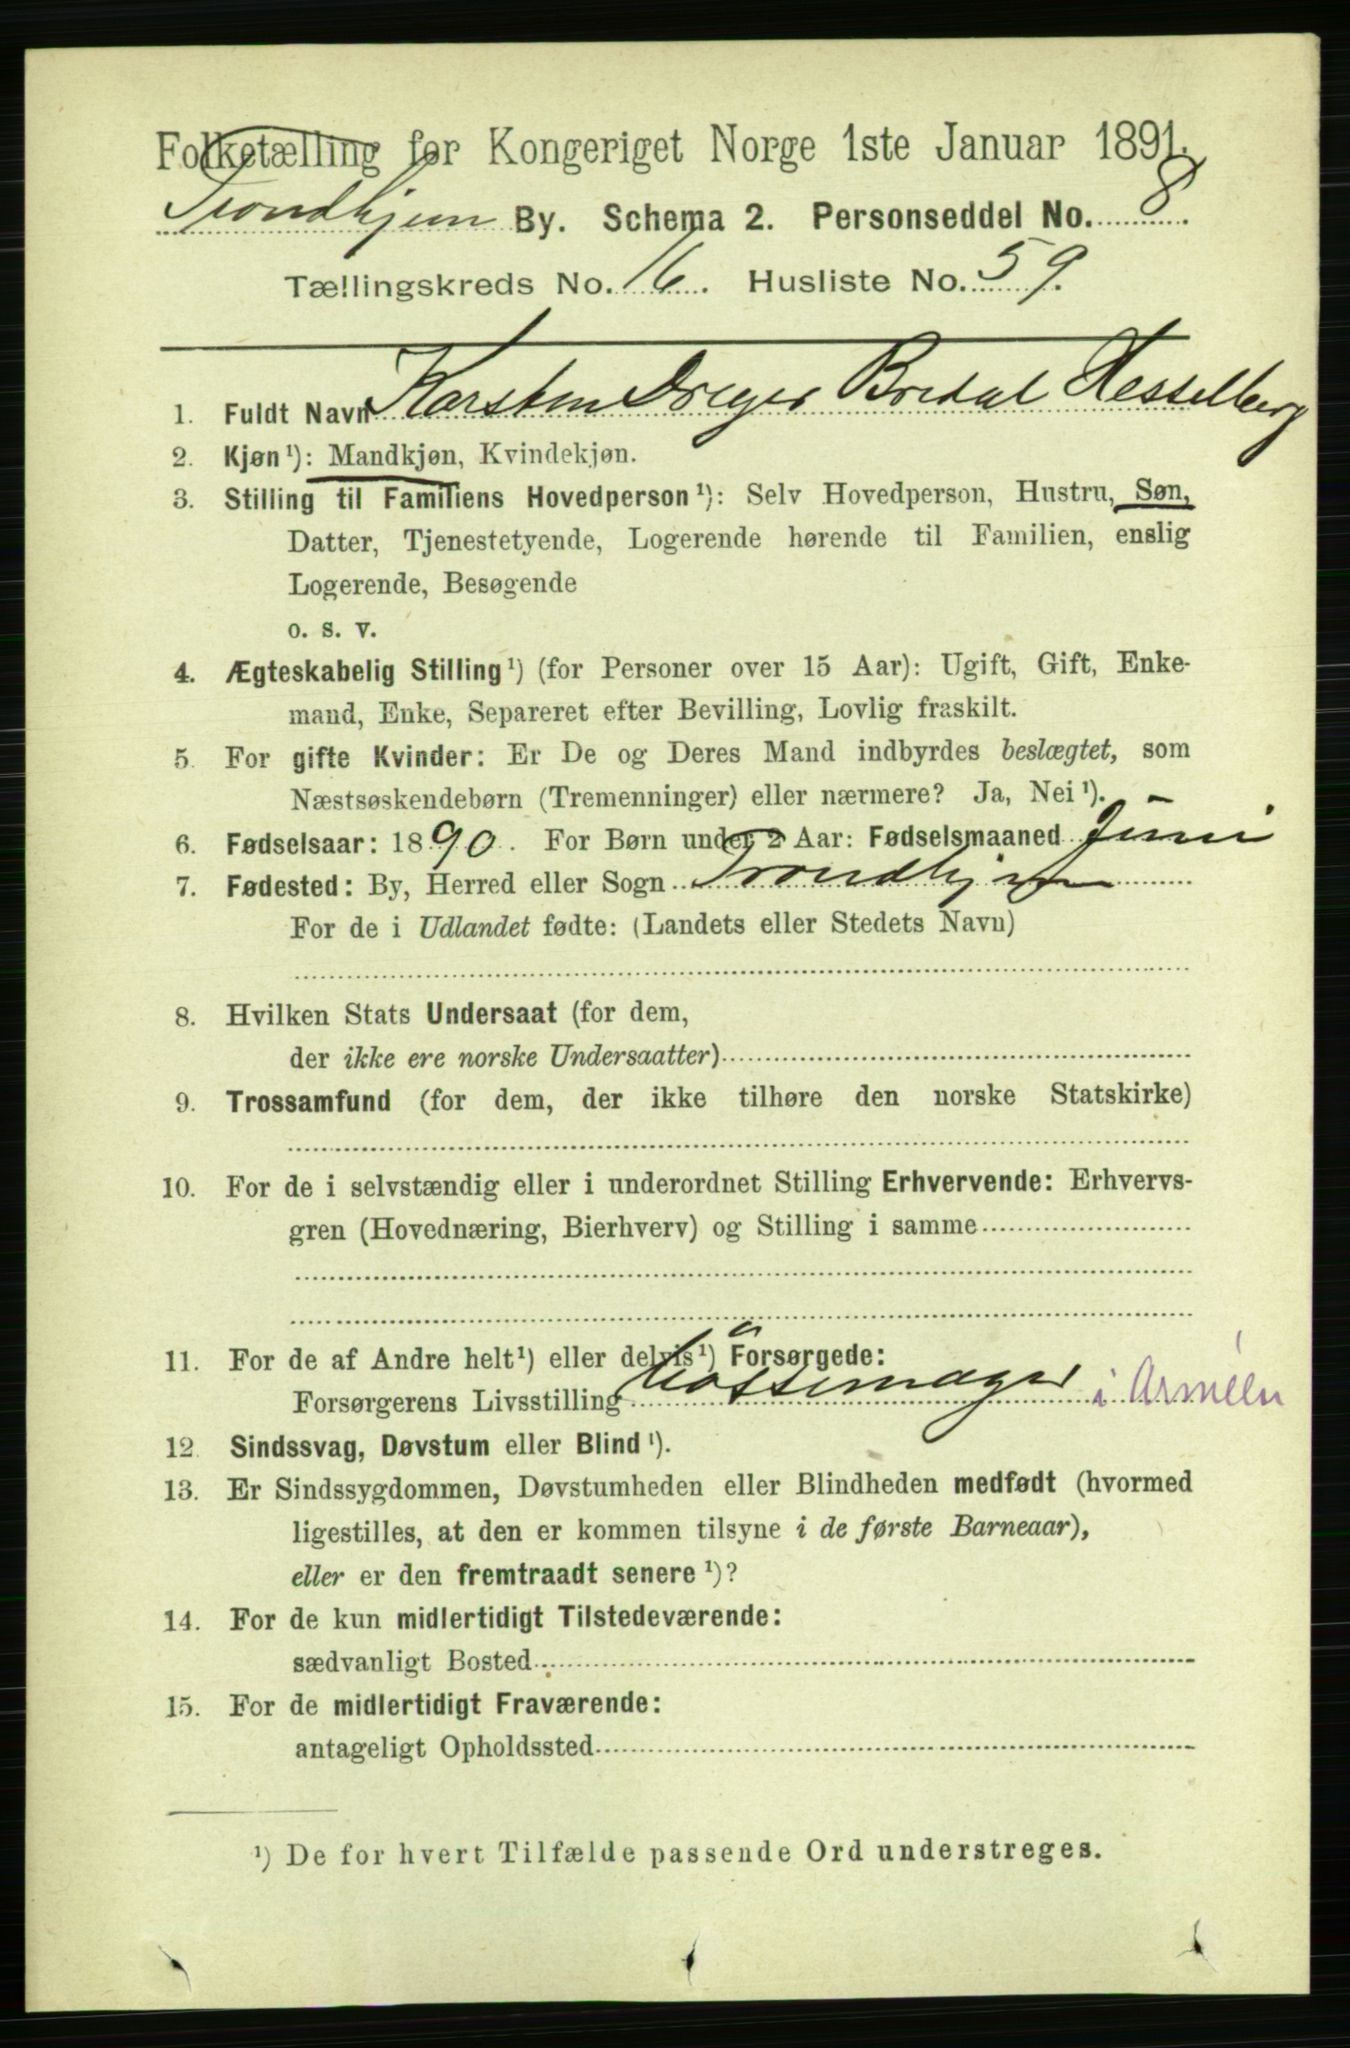 Folketælling for Kongeriget Norge 1ste Januar 1891.
Trondhjem By. Schema 2. Personseddel No. 8.
Tællingskreds No. 16. Husliste No. 59.
1. Fuldt Navn Karsten Dreyer Bredal Hesselberg
2. Kjøn¹): Mandkjøn, Kvindekjøn.
3. Stilling til Familiens Hovedperson¹): Selv Hovedperson, Hustru, Søn,
Datter, Tjenestetyende, Logerende hørende til Familien, enslig
Logerende, Besøgende
o. s. v.
4. Ægteskabelig Stilling¹) (for Personer over 15 Aar): Ugift, Gift, Enke-
mand, Enke, Separeret efter Bevilling, Lovlig fraskilt.
5. For gifte Kvinder: Er De og Deres Mand indbyrdes beslægtet, som
Næstsøskendebørn (Tremenninger) eller nærmere? Ja, Nei¹).
6. Fødselsaar: 1890. For Børn under 2 Aar: Fødselsmaaned Juni
7. Fødested: By, Herred eller Sogn Trondhjem
For de i Udlandet fødte: (Landets eller Stedets Navn)
8. Hvilken Stats Undersaat (for dem,
der ikke ere norske Undersaatter)
9. Trossamfund (for dem, der ikke tilhøre den norske Statskirke)
10. For de i selvstændig eller i underordnet Stilling Erhvervende: Erhvervs-
gren (Hovednæring, Bierhverv) og Stilling i samme
11. For de af Andre helt¹) eller delvis¹) Forsørgede:
Forsørgerens Livsstilling Bøssemager i Armeen
12. Sindssvag, Døvstum eller Blind¹).
13. Er Sindssygdommen, Døvstumheden eller Blindheden medfødt (hvormed
ligestilles, at den er kommen tilsyne i de første Barneaar),
eller er den fremtraadt senere¹)?
14. For de kun midlertidigt Tilstedeværende:
sædvanligt Bosted
15. For de midlertidigt Fraværende:
antageligt Opholdssted
¹) De for hvert Tilfælde passende Ord understreges.